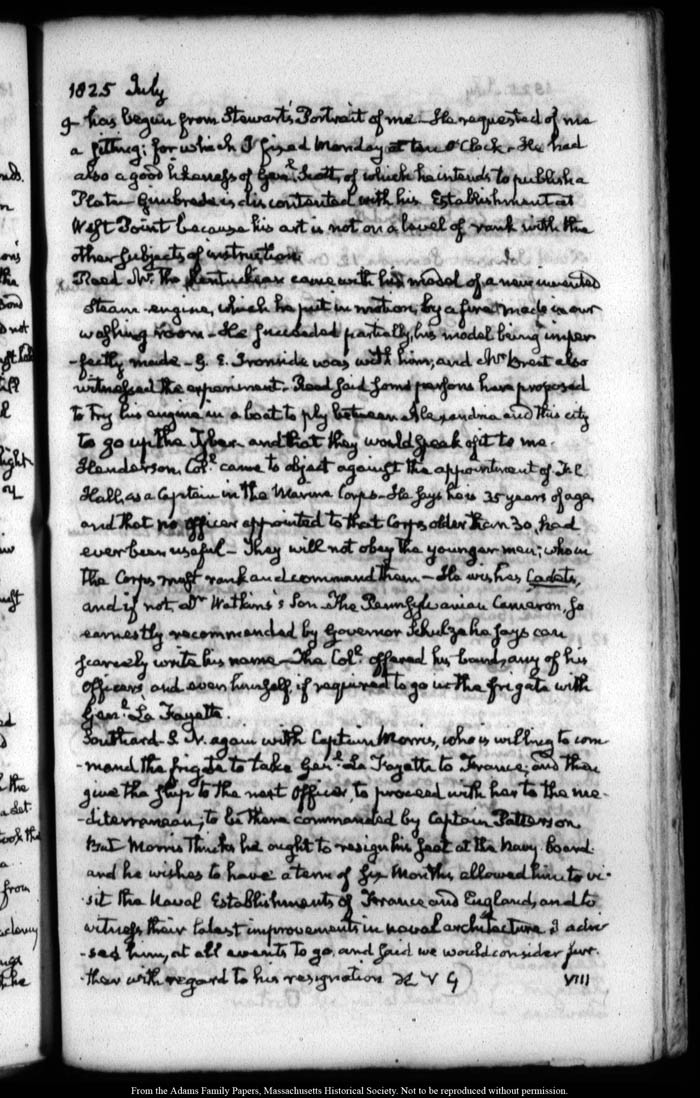 1825 July
has begun from Stewart's Portrait of me - He requested of me
a sitting; for which I fixed Monday at ten O'Clock - He had
also a good likeness of Genl. Scott, of which he intends to publish a
Plate - Gimbrede is discontented with his Establishment at
West Point because his art is not on a level of rank with the
other subjects of instruction.
Reed Mr. The Kentuckian came with his model of a new invented
Steam-engine, which he put in motion, by a fire made in our
washing room - He succeeded partially, his model being imper-
-fectly made - G. E. Ironside was with him; and Mr. Brent also
witnessed the experiment - Reed said some persons have proposed
to try his engine in a boat to ply between Alexandria and this city
to go up the Tyber - and that they would speak of it to me.
Henderson Coll. came to object against the appointment of
Hall, as a Captain in the Marine Corps - He says he is 35 years of age,
and that no officer appointed to that Corps older than 30, had
ever been useful - They will not obey the younger men; who in
the Corps must rank and command them - He wishes Cadets,
and if not, Dr Watkins's Son - The Pennsylvanian Cameron, so
earnestly recommended by Governor Schulze he says can
scarcely write his name - The Coll. offered his band, any of his
Officers and even himself if required to go in the frigate with
Genl. La Fayette.
Southard - S. N. again with Captain Morris, who is willing to com
-mand the frigate to take Genl. La Fayette to France; and then
give the ship to the next Officer, to proceed with her to the me-
-diterranean; to be there commanded by Captain Patterson
But Morris thinks he ought to resign his seat at the Navy Board.
and he wishes to have a term of six Months allowed him to vi-
-sit the Naval Establishments of France and England, and to
witness their latest improvements in naval architecture. I advi-
-sed him, at all events to go, and said we would consider fur-
-ther with regard to his resignation
VIII
From the Adams Family Papers, Massachusetts Historical Society. Not to be reproduced without permission.